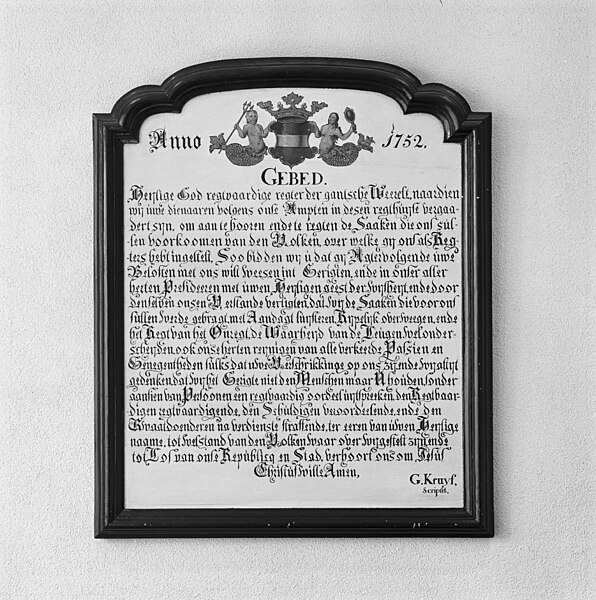 Anno 1752.
GEBED.
Heylige God regtvaardige regter der gantsche Werelt, naardien
wy uwe dienaaren volgens onse Ampten in desen regthuyse vergaa-
dert zyn, om aan te hooren ende te regten de Saaken die ons sul-
len voorkoomen van den Volken, over welke gy ons als Reg-
ters hebt ingestelt, Soo bidden wy u dat gy Agtervolgende uwe
Beloften met ons wilt weesen int Gerigten, ende in onser aller
herten Presideeren met uwen Heyligen geest der Wysheyt, ende door
denselven onsen Verstande verligten, dat wy de Saaken die voor ons
sullen werde gebragt, met Aandagt luysteren Rypelyk overweegen, ende
het Regt van het Onregt, de Waarheyd van de Leugen, wel onder-
scheyden, ook onse herten reynigen van alle verkeerde Passien en
Geneegentheden sulks dat uwe Verschrikkinge op ons zy, ende wy altyt
gedenken dat wy het Gerigte niet den Menschen maar U houden, sonder
aansien van Persoonen een regtvaardig oordeel uytspreeken den Regtvaar-
digen regtvaardigende, den Schuldigen veroordeelende, ende den
Kwaaddoenderen na verdienste straffende, ter eeren van uwen Heylige
naame, tot welstand van den Volken waar over wy gestelt zyn, ende
tot Lof van onse Republieq en Stad, verhoort ons om Jesus
Christus wille Amen,
G. Kruys.
Scripsit.